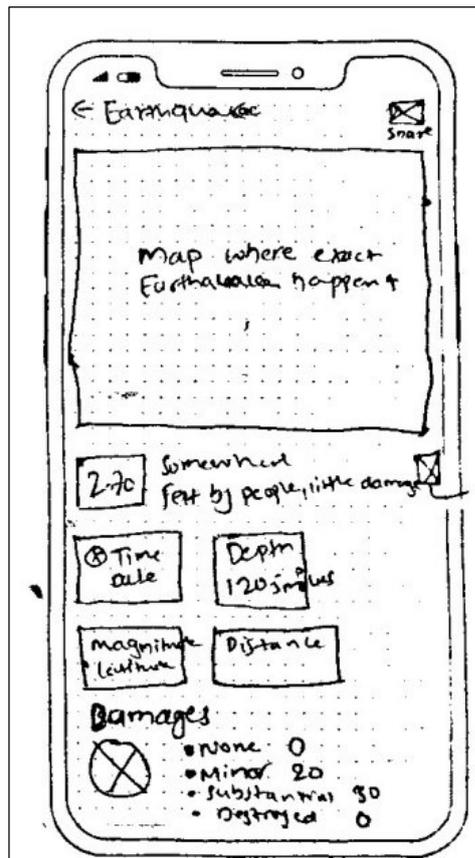 ← Earthquake
Share
Map where exact
Earthquake happen
2.70
Somewhere
Felt by people, little damage
Time
date
Depth
120
Magnitude
Distance
Damages
• None 0
• Minor 20
• Substantial 30
• Destroyed 0